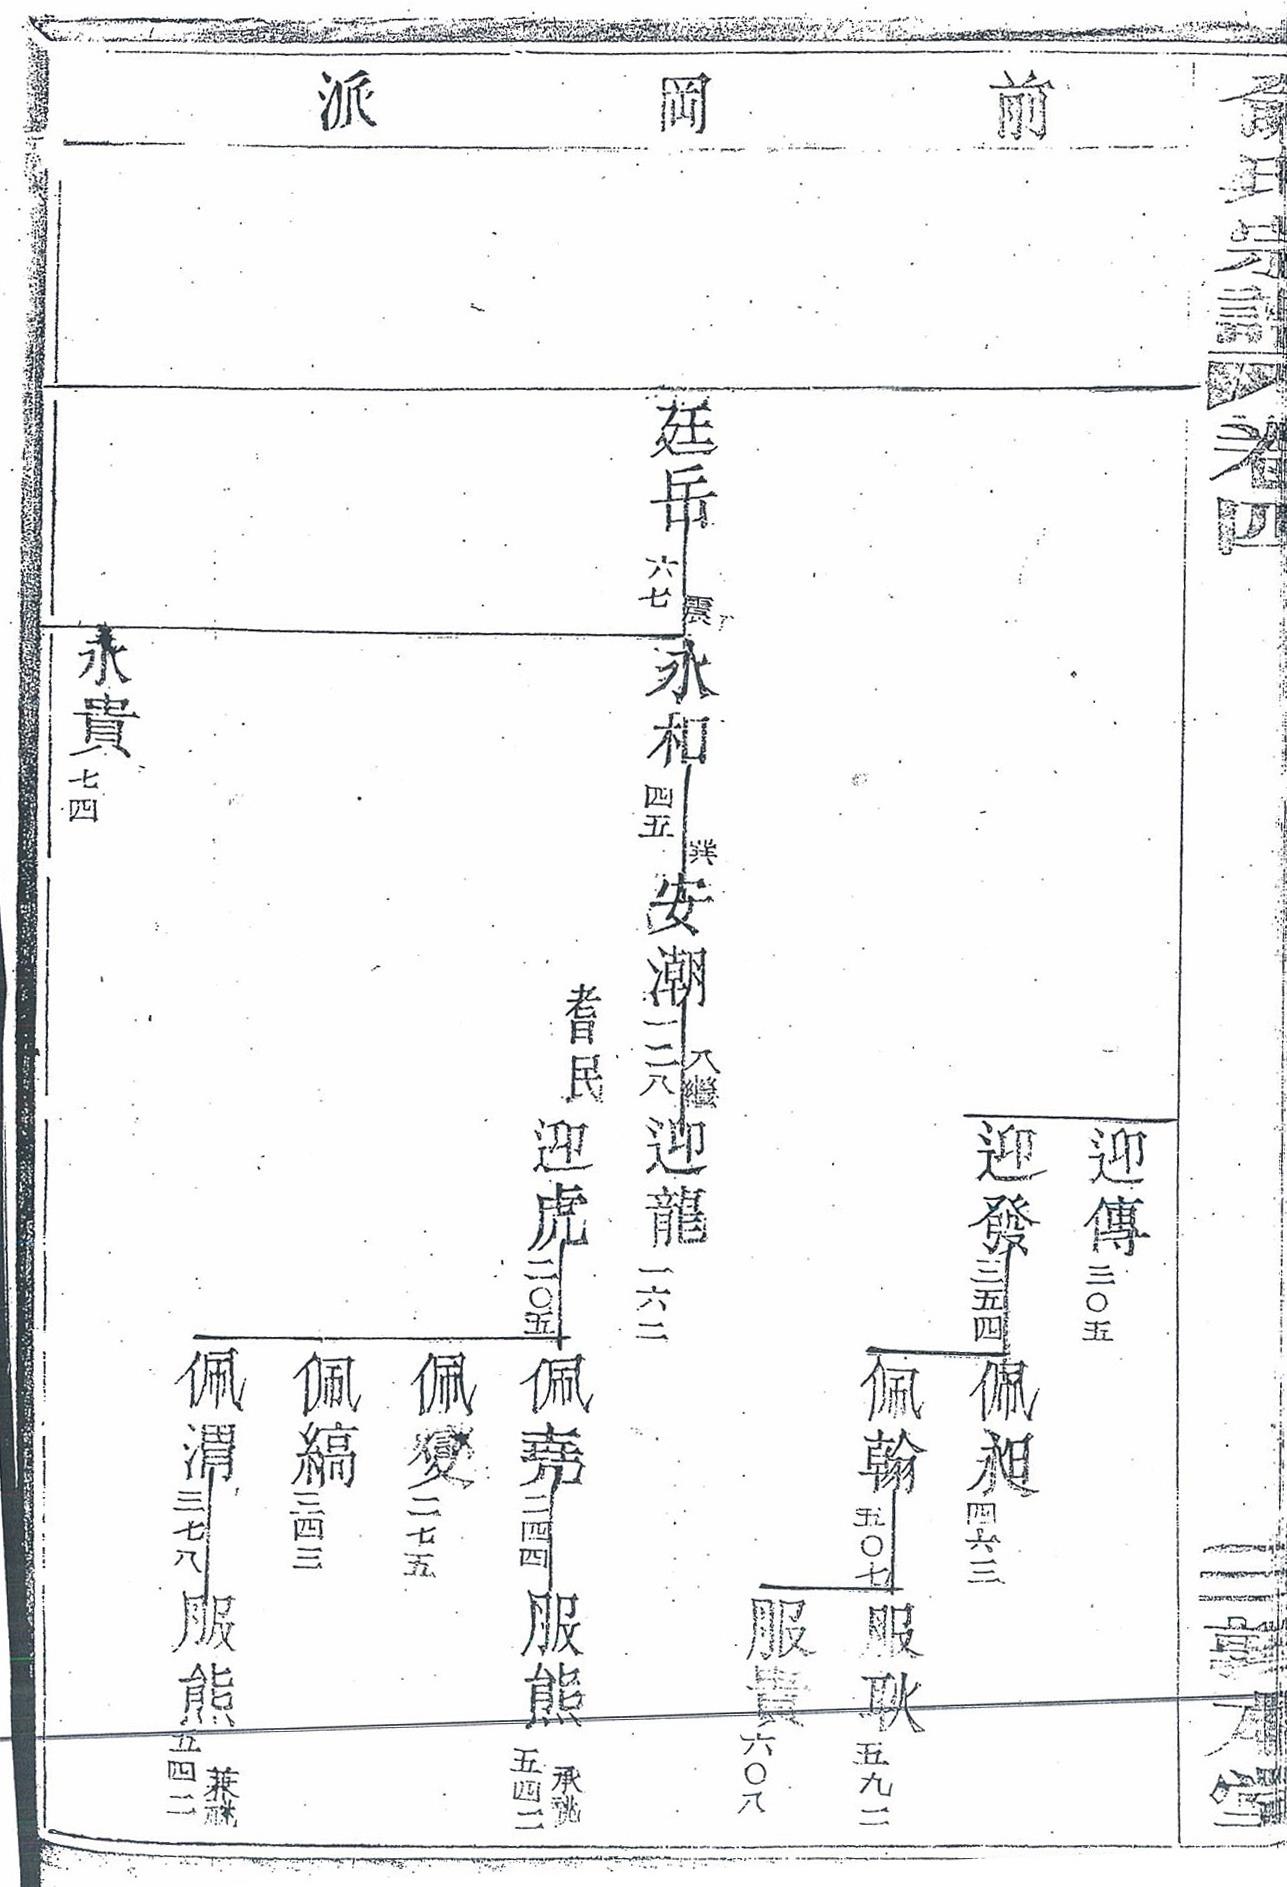 俞氏宗譜 卷四
三 敦本堂
前岡派
迎傳 三〇五
迎發 三五四
佩昶 四六三
佩翰 五〇七
服耿 五九二
服貴 六〇八
廷岳 六七
震
永和 四五
巽
安潮 一二八
入繼
迎龍 一六二
耆民
迎虎 二〇五
佩堯 二四四
服熊 五四二 承祧
佩夔 二七五
佩縞 三四三
佩渭 三七八
服熊 五四二 兼祧
永貴 七四